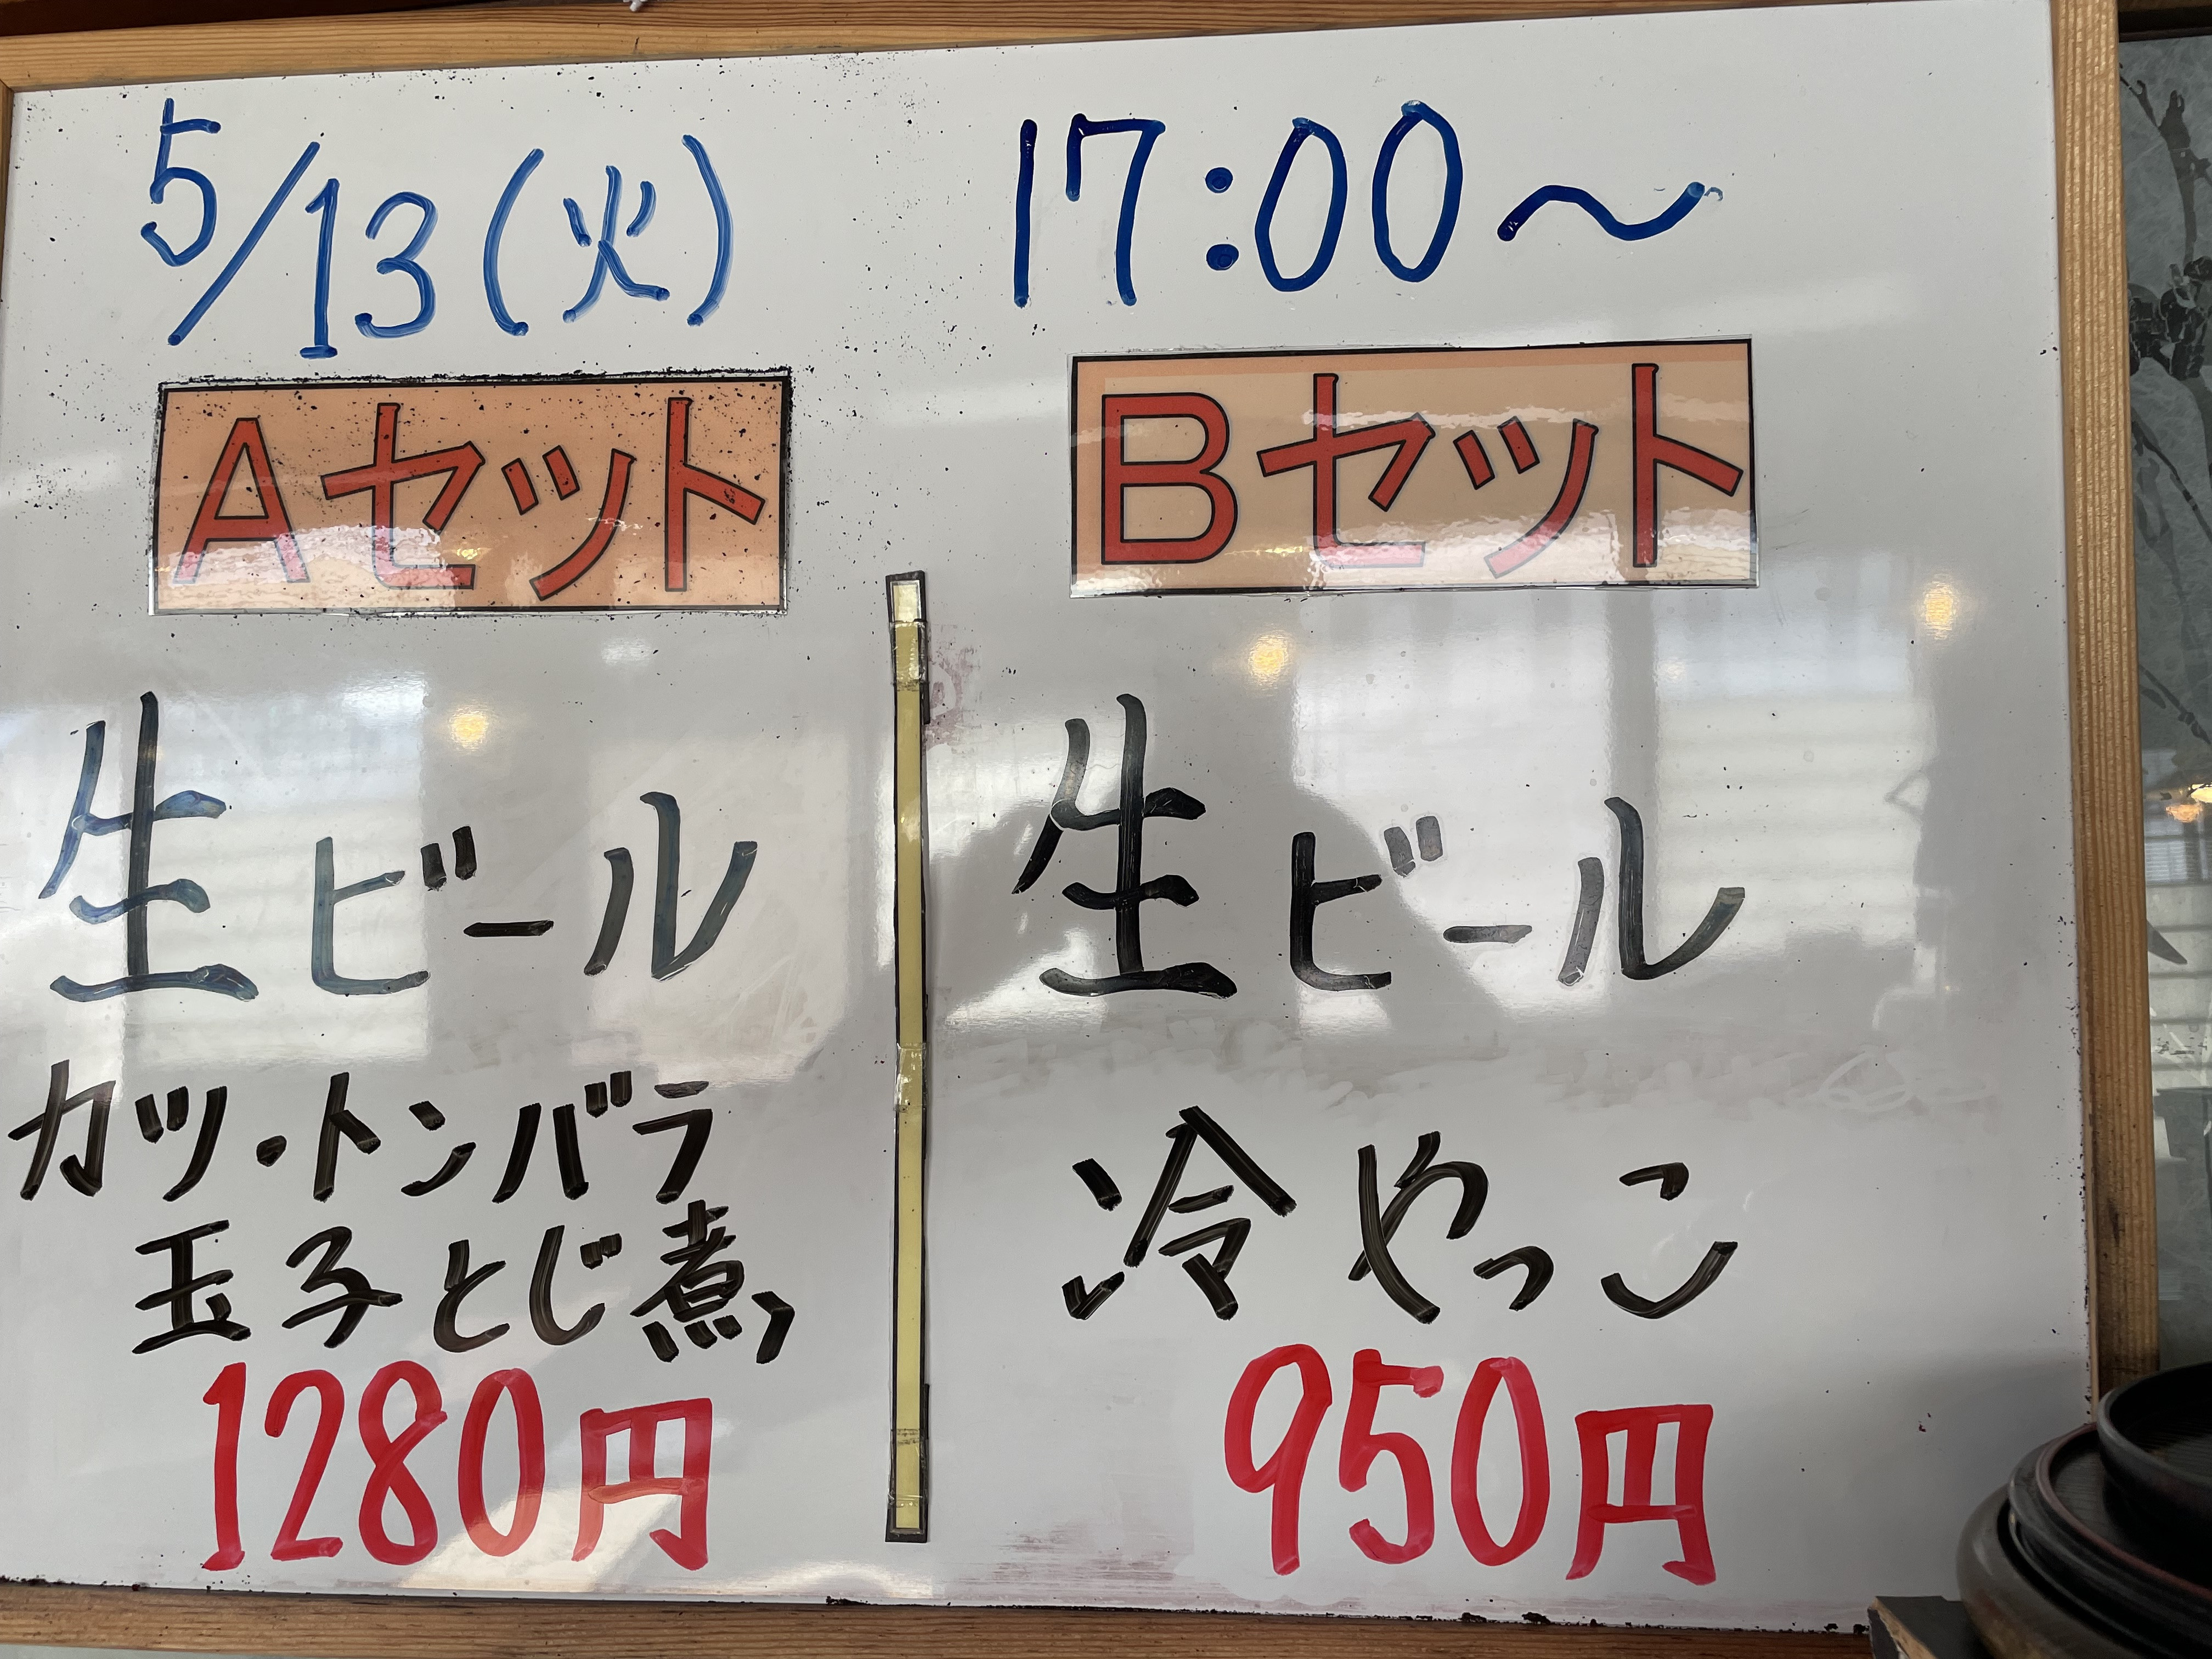 5/13(火) 17:00～
Aセット
生ビール
カツ・トンバラ
玉子とじ煮
1280円
Bセット
生ビール
冷やっこ
950円